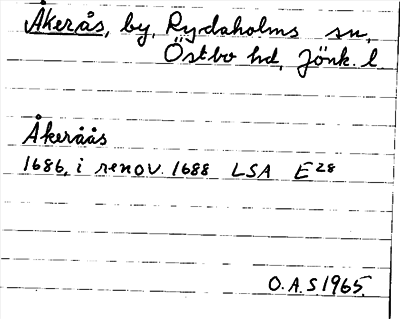 Åkerås, by, Rydaholms sn,
Östbo hd, Jönk. l
Åkeråås
1686, i renov. 1688 LSA E28
O.A.S. 1965.